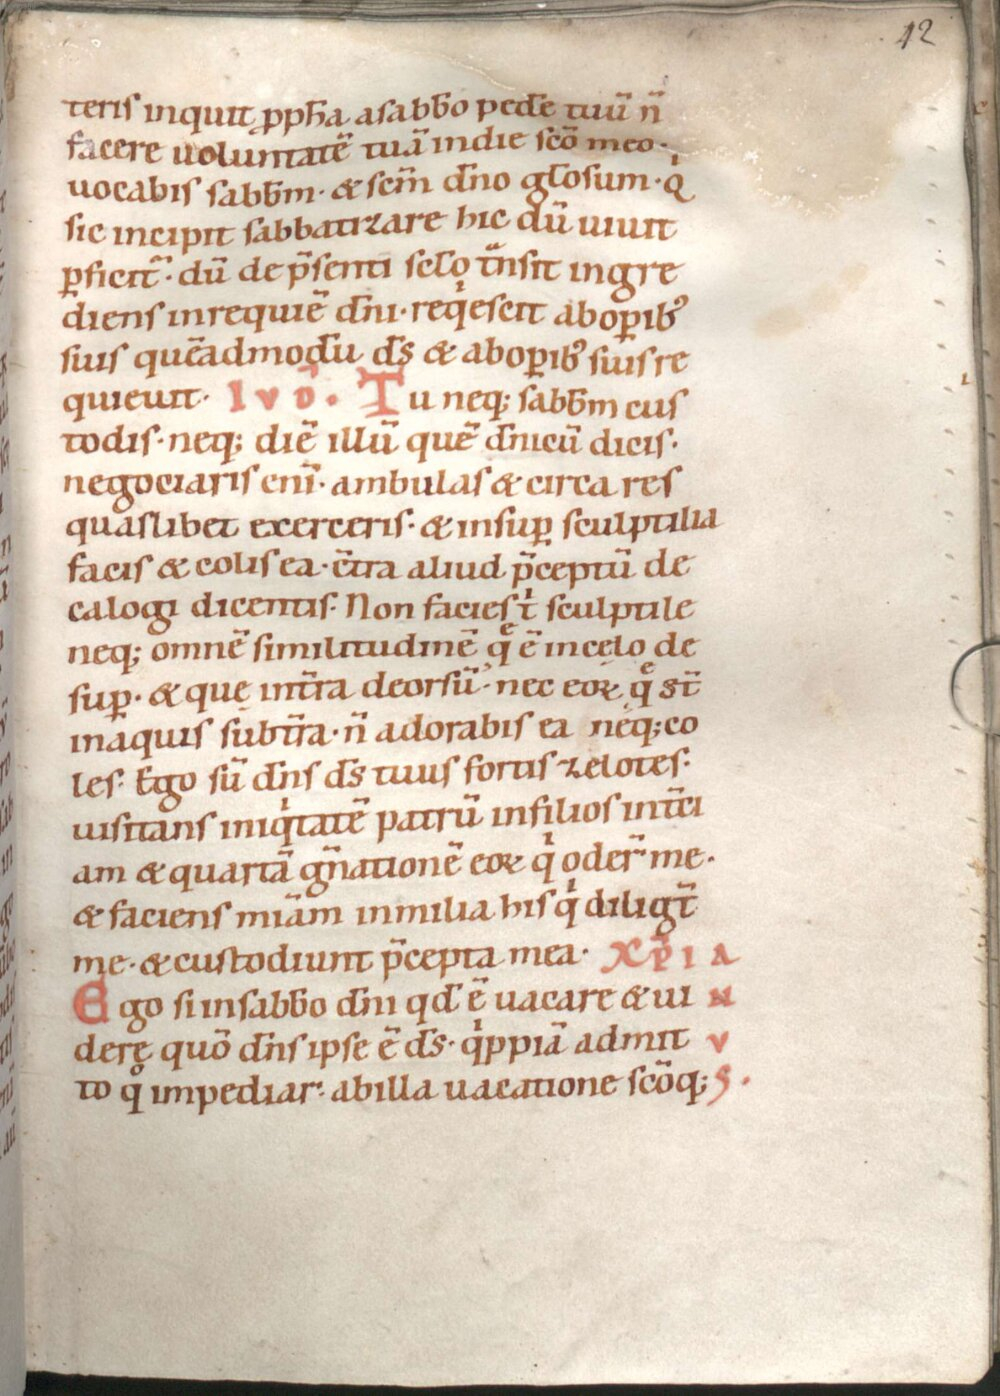 42
teris inquit ꝓph̄a a sabb̄o pedē tuū n̄
facere uoluntatē tuā in die sc̄o meo·
uocabis sabb̄m· & sc̄m dn̄o gl̄osum· qͥ
sic incipit sabbatizare hic dū uiuit
ꝑficit᷑· dū de p̄senti sclo t̄nsit ingre
diens in requiē dn̄i· reqͥescit ab oꝑibꝰ
suis quēadmodū d̄s & ab oꝑibꝰ suis re
quieuit· IVD̄. Tu neq; sabb̄m cus
todis· neq; diē illū quē dn̄icū dicis·
negociaris eni᷑· ambulas & circa res
quaslibet exerceris· & insuꝑ sculptilia
facis & colis ea· c̄tra aliud p̄ceptū de
calogi dicentis· Non facies tͥ sculptile
neq; omnē similitudinē qͤ ē in cęlo de
suꝑ· & quę in t̄ra deorsū· nec eoꝝ qͤ st̄
in aquis sub t̄ra· n̄ adorabis ea neq; co
les· Ego sū dn̄s d̄s tuus fortis zelotes·
uisitans iniqͥtatē patrū in filios in t̄ci
am & quartā gn̄ationē eoꝝ qͥ oder̄ me·
& faciens miām in milia his qͥ diligt̄
me· & custodiunt p̄cepta mea· XP̄IA
Ego si in sabb̄o dn̄i qd̄ ē uacare & ui N
derę quō dn̄s ipse ē d̄s· qͥppiā admit V
to qͦ impediar· ab illa uacatione sc̄oq; S.